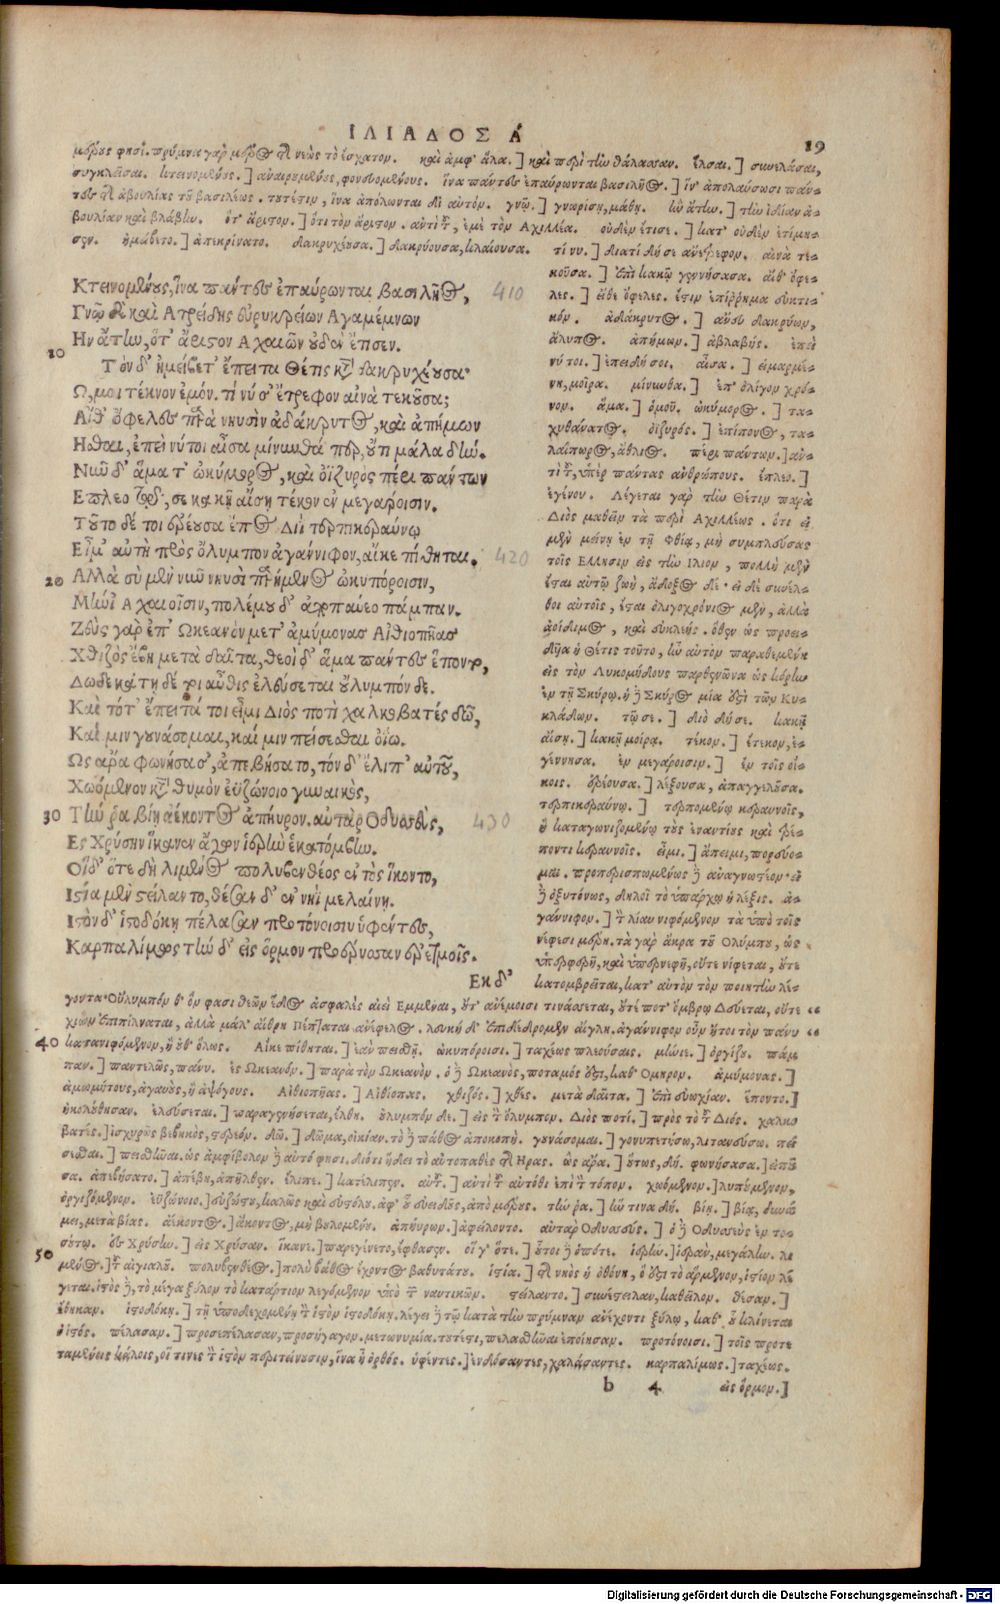 ΙΛΙΑΔΟΣ Α
19
μέρους φησί. πρύμνα γὰρ μέρος τῆς νεὼς τὸ ἔσχατον. καὶ ἀμφ' ἅλα.] καὶ περὶ τὴν θάλασσαν. ἔλσαι.] συνελάσαι,
συγκλεῖσαι. κτεινομένους.] ἀναιρουμένους, φονευομένους. ἵνα πάντες ἐπαύρωνται βασιλῆος.] ἵν' ἀπολαύσωσι πάν-
τες τῆς ἀβουλίας τοῦ βασιλέως. τουτέστιν, ἵνα ἀπόλωνται δι' αὐτόν. γνῷ.] γνωρίσῃ, μάθῃ. ἣν ἄτην.] τὴν ἰδίαν ἀ-
βουλίαν καὶ βλάβην. ὅτ' ἄριστον.] ὅτι τὸν ἄριστον. ἀντὶ τοῦ, ἐμὲ τὸν Ἀχιλλέα. οὐδὲν ἔτισε.] κατ' οὐδὲν ἐτίμη-
σεν. ἠμείβετο.] ἀπεκρίνατο. δακρυχέουσα.] δακρύουσα, κλαίουσα.
Κτεινομένους, ἵνα πάντες ἐπαύρωνται βασιλῆος, 410
Γνῷ δὲ καὶ Ἀτρείδης εὐρυκρείων Ἀγαμέμνων
Ἣν ἄτην, ὅτ' ἄριστον Ἀχαιῶν οὐδὲν ἔτισεν.
10 Τὸν δ' ἠμείβετ' ἔπειτα Θέτις κατὰ δακρυχέουσα·
Ὤ μοι τέκνον ἐμόν. τί νύ σ' ἔτρεφον αἰνὰ τεκοῦσα;
Αἴθ' ὄφελες παρὰ νηυσὶν ἀδάκρυτος, καὶ ἀπήμων
Ἧσθαι, ἐπεὶ νύ τοι αἶσα μίνυνθά περ, οὔτι μάλα δήν.
Νῦν δ' ἅμα τ' ὠκύμορος, καὶ ὀϊζυρὸς περὶ πάντων
Ἔπλεο τῷ, σε κακῇ αἴσῃ τέκον ἐν μεγάροισιν.
Τοῦτο δέ τοι ἐρέουσα ἔπος Διῒ τερπικεραύνῳ
Εἶμ' αὐτὴ πρὸς ὄλυμπον ἀγάννιφον, αἴκε πίθηται. 420
20 Ἀλλὰ σὺ μὲν νῦν νηυσὶ παρήμενος ὠκυπόροισιν,
Μήνι' Ἀχαιοῖσιν, πολέμου δ' ἀποπαύεο πάμπαν.
Ζεὺς γὰρ ἐπ' Ὠκεανὸν μετ' ἀμύμονας Αἰθιοπῆας
Χθιζὸς ἔβη μετὰ δαῖτα, θεοὶ δ' ἅμα πάντες ἕποντο,
Δωδεκάτῃ δέ τοι αὖθις ἐλεύσεται οὔλυμπόν δε.
Καὶ τότ' ἔπειτά τοι εἶμι Διὸς ποτὶ χαλκοβατὲς δῶ,
Καί μιν γουνάσομαι, καί μιν πείσεσθαι ὀΐω.
Ὣς ἄρα φωνήσασ', ἀπεβήσατο, τὸν δ' ἔλιπ' αὐτοῦ,
Χωόμενον κατὰ θυμὸν ἐϋζώνοιο γυναικὸς,
30 Τήν ῥα βίῃ ἀέκοντος ἀπηύρον. αὐτὰρ Ὀδυσσεὺς, 430
Ἐς Χρύσην ἵκανεν ἄγων ἱερὴν ἑκατόμβην.
Οἱ δ' ὅτε δὴ λιμένος πολυβενθέος ἐντὸς ἵκοντο,
Ἱστία μὲν στείλαντο, θέσαν δ' ἐν νηῒ μελαίνῃ.
Ἱστὸν δ' ἱστοδόκῃ πέλασαν προτόνοισιν ὑφέντες,
Καρπαλίμως τὴν δ' εἰς ὅρμον προέρυσσαν ἐρετμοῖς.
Ἐκ δ'
τί νυ.] διατί δή σε ἀνέτρεφον. αἰνὰ τε-
κοῦσα.] ἐπὶ κακῷ γεννήσασα. αἴθ' ὄφε-
λες.] εἴθε ὄφελες. ἔστιν ἐπίρρημα εὐκτι-
κόν. ἀδάκρυτος.] ἄνευ δακρύων,
ἄλυπος. ἀπήμων.] ἀβλαβής. ἐπεὶ
νύ τοι.] ἐπειδή σοι. αἶσα.] εἱμαρμέ-
νη, μοῖρα. μίνυνθα.] ἐπ' ὀλίγον χρό-
νον. ἅμα.] ὁμοῦ. ὠκύμορος.] τα-
χυθάνατος. ὀϊζυρός.] ἐπίπονος, τα-
λαίπωρος, ἄθλιος. περὶ πάντων.] ἀν-
τὶ τοῦ, ὑπὲρ πάντας ἀνθρώπους. ἔπλεο.]
ἐγένου. Λέγεται γὰρ τὴν Θέτιν παρὰ
Διὸς μαθεῖν τὰ περὶ Ἀχιλλέως. ὅτι εἰ
μὲν μείνῃ ἐν τῇ Φθίᾳ, μὴ συμπλεύσας
τοῖς Ἕλλησιν εἰς τὴν Ἴλιον, πολλὴ μὲν
ἔσται αὐτῷ ζωὴ, ἄδοξος δέ· εἰ δὲ συνέλ-
θοι αὐτοῖς, ἔσται ὀλιγοχρόνιος μὲν, ἀλλὰ
ἀοίδιμος, καὶ εὐκλεής. ὅθεν ὡς προει-
δυῖα ἡ Θέτις τοῦτο, ἦν αὐτὸν παραθεμένη
εἰς τὸν Λυκομήδους παρθενῶνα ὡς κόρην
ἐν τῇ Σκύρῳ. ἡ δὲ Σκῦρος μία ἐστὶ τῶν Κυ-
κλάδων. τῷ σε.] διὸ δή σε. κακῇ
αἴσῃ.] κακῇ μοίρᾳ. τέκον.] ἔτεκον, ἐ-
γέννησα. ἐν μεγάροισιν.] ἐν τοῖς οἴ-
κοις. ἐρέουσα.] λέξουσα, ἀπαγγελοῦσα.
τερπικεραύνῳ.] τερπομένῳ κεραυνοῖς,
ἢ καταγωνιζομένῳ τοὺς ἐναντίους καὶ τρέ-
ποντι κεραυνοῖς. εἶμι.] ἄπειμι, πορεύο-
μαι. προπερισπωμένως δὲ ἀναγνωστέον· εἰ
δὲ ὀξυτόνως, δηλοῖ τὸ ὑπάρχω ἡ λέξις. ἀ-
γάννιφον.] τὸ λίαν νιφόμενον τὰ ὑπὸ τοῖς
νέφεσι μέρη. τὰ γὰρ ἄκρα τοῦ Ὀλύμπου, ὡς
ὑπερφερῆ, καὶ ὑπερνεφῆ, οὔτε νίφεται, οὔτε
κατομβρεῖται, κατ' αὐτὸν τὸν ποιητὴν λέ-
γοντα· Οὔλυμπόν θ' ὅν φασι θεῶν ἕδος ἀσφαλὲς αἰεὶ Ἔμμεναι, οὔτ' ἀνέμοισι τινάσσεται, οὔτέ ποτ' ὄμβρῳ Δεύεται, οὔτε
χιὼν ἐπιπίλναται, ἀλλὰ μάλ' αἴθρη Πέπταται ἀνέφελος. λευκὴ δ' ἐπιδέδρομεν αἴγλη. ἀγάννιφον οὖν ἤτοι τὸν πάνυ
40 κατανιφόμενον, ἢ οὐδ' ὅλως. Αἴκε πίθηται.] ἐὰν πεισθῇ. ὠκυπόροισι.] ταχέως πλεούσαις. μήνιε.] ὀργίζου. πάμ
παν.] παντελῶς, πάνυ. ἐς Ὠκεανόν.] παρὰ τὸν Ὠκεανόν. ὁ δὲ Ὠκεανὸς, ποταμός ἐστι, καθ' Ὅμηρον. ἀμύμονας.]
ἀμωμήτους, ἀγαθοὺς, ἢ ἀψόγους. Αἰθιοπῆας.] Αἰθίοπας. χθιζός.] χθές. μετὰ δαῖτα.] ἐπὶ εὐωχίαν. ἕποντο.]
ἠκολούθησαν. ἐλεύσεται.] παραγενήσεται, ἔλθῃ. οὔλυμπόν δε.] εἰς τὸ ὄλυμπον. Διὸς ποτί.] πρὸς τὸ τοῦ Διός. χαλκο
βατές.] ἰσχυρῶς βεβηκὸς, στερεόν. δῶ.] δῶμα, οἰκίαν. τὸ δὲ πάθος ἀποκοπή. γουνάσομαι.] γονυπετήσω, λιτανεύσω. πεί
σεσθαι.] πεισθῆναι. ὡς ἀμφίβολον δὲ αὐτό φησι. διότι ᾔδει τὸ αὐτοπαθὲς τῆς Ἥρας. ὣς ἄρα.] οὕτως, δή. φωνήσασα.] εἰποῦ
σα. ἀπεβήσατο.] ἀπέβη, ἀπῆλθεν. ἔλιπε.] κατέλιπεν. αὐτοῦ.] ἀντὶ τοῦ αὐτόθι ἐπὶ τὸ τόπον. χωόμενον.] λυπούμενον,
ὀργιζόμενον. ἐϋζώνοιο.] εὐζώστου, καλῶς καὶ εὐστόλου. ἀφ' οὗ εὐειδοῦς, ἀπὸ μέρους. τήν ῥα.] ἥν τινα δή. βίῃ.] βίᾳ, δυνά
μει, μετὰ βίας. ἀέκοντος.] ἄκοντος, μὴ βουλομένου. ἀπηύρων.] ἀφείλοντο. αὐτὰρ Ὀδυσσεύς.] ὁ δὲ Ὀδυσσεὺς ἐν το-
σούτῳ. ἐς Χρύσην.] εἰς Χρύσαν. ἵκανε.] παρεγένετο, ἔφθασεν. οἵ γ' ὅτε.] οὗτοι δὲ ὁπότε. ἱερήν.] ἱερὰν, μεγάλην. λι
50 μένος.] τοῦ αἰγιαλοῦ. πολυβενθέος.] πολὺ βάθος ἔχοντος βαθυτάτου. ἱστία.] τῆς νηὸς ἡ ὀθόνη, ὅ ἐστι τὸ ἄρμενον, ἱστίον λέ
γεται. ἱστὸς δὲ, τὸ μέγα ξύλον τὸ κατάρτιον λεγόμενον ὑπὸ τῶν ναυτικῶν. στείλαντο.] συνέστειλαν, καθεῖλον. θέσαν.]
ἔθηκαν. ἱστοδόκῃ.] τῇ ὑποδεχομένῃ τὸ ἱστὸν ἱστοδόκῃ. λέγει δὲ τῷ κατὰ τὴν πρύμναν ἀνέχοντι ξύλῳ, καθ' οὗ κλίνεται
ὁ ἱστός. πέλασαν.] προσεπέλασαν, προσήγαγον. μετωνυμία. τουτέστι, πελασθῆναι ἐποίησαν. προτόνοισι.] τοῖς προτε
ταμένοις κάλοις, οἵ τινες τὸ ἱστὸν περιτείνουσιν, ἵνα ᾖ ὀρθός. ὑφέντες.] ἐνδόσαντες, χαλάσαντες. καρπαλίμως.] ταχέως.
b 4 εἰς ὅρμον.]
Digitalisierung gefördert durch die Deutsche Forschungsgemeinschaft - DFG